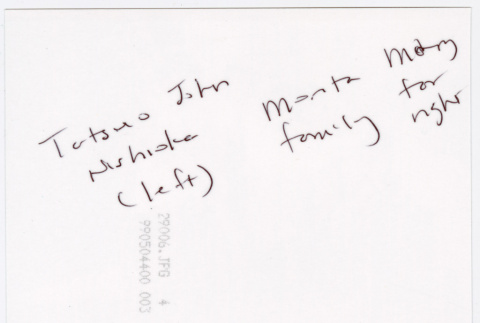 Tatsuo John
Nishioka
(left)
Morita Mary
family for
right
29006.JPG 4
990504400 003